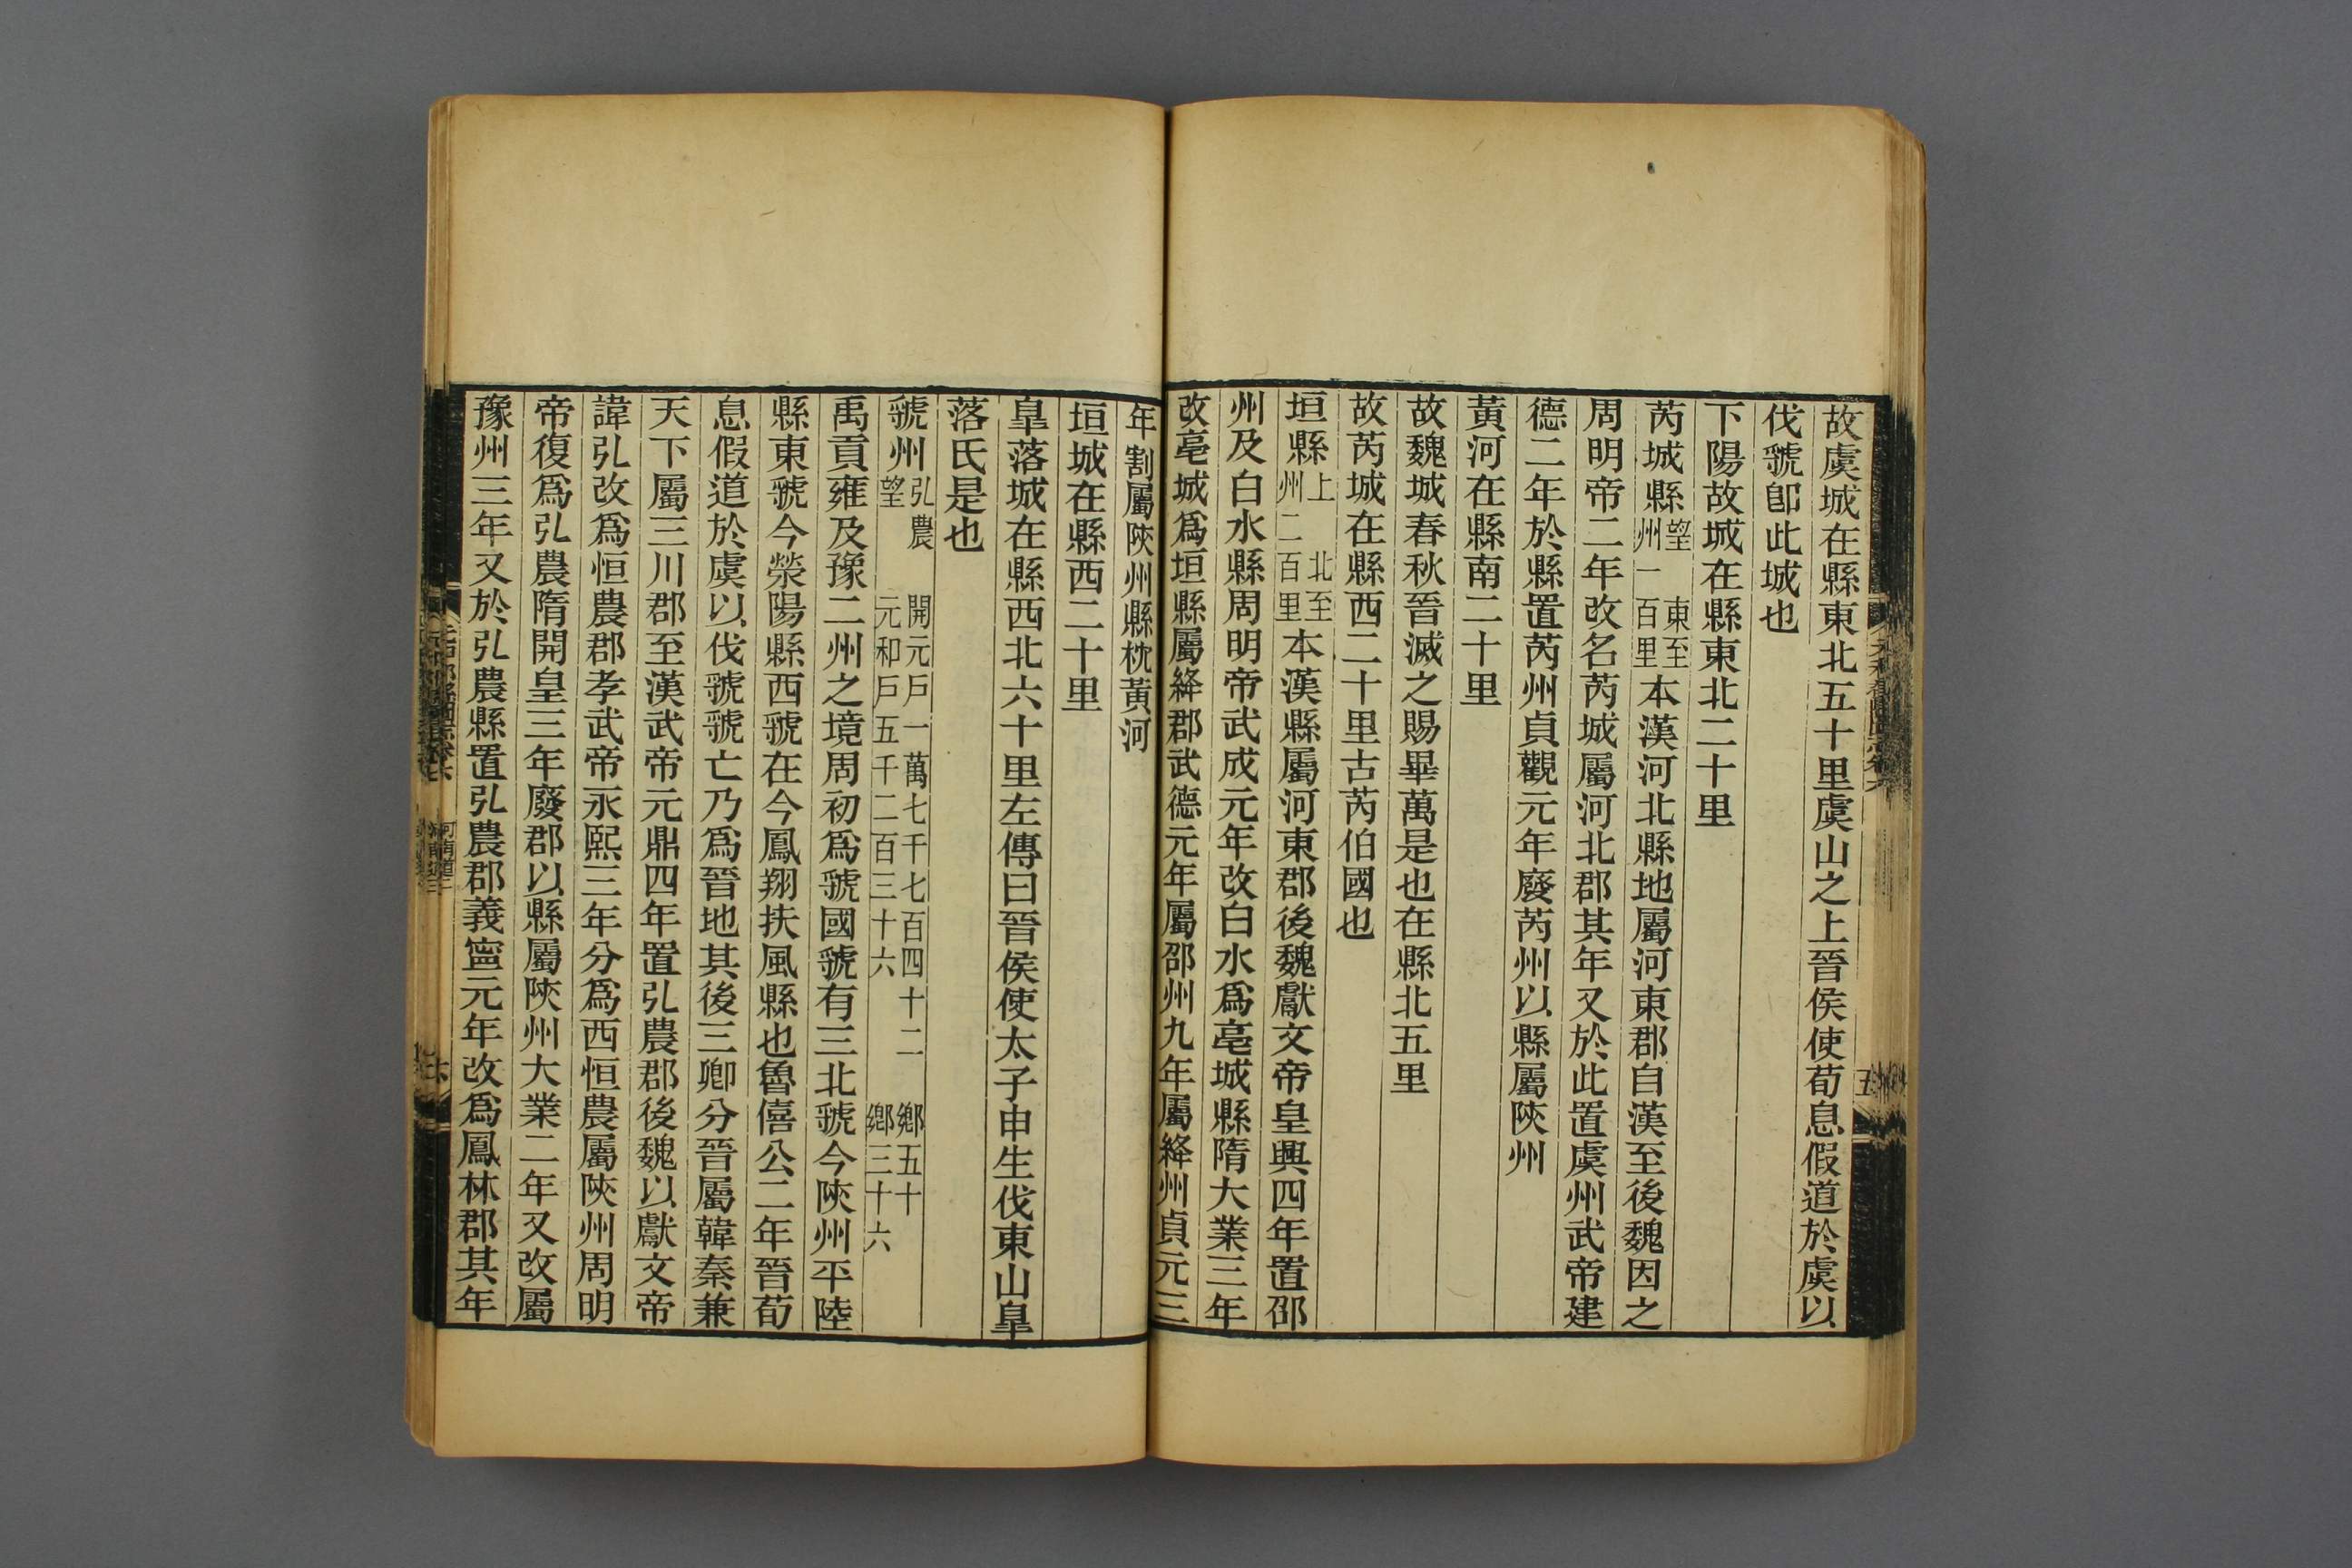 故虞城在縣東北五十里虞山之上晉侯使荀息假道於虞以
伐虢卽此城也
下陽故城在縣東北二十里
芮城縣望 東至州一百里本漢河北縣地屬河東郡自漢至後魏因之
周明帝二年改名芮城屬河北郡其年又於此置虞州武帝建
德二年於縣置芮州貞觀元年廢芮州以縣屬陝州
黃河在縣南二十里
故魏城春秋晉滅之賜畢萬是也在縣北五里
故芮城在縣西二十里古芮伯國也
垣縣上 北至州二百里本漢縣屬河東郡後魏獻文帝皇興四年置邵
州及白水縣周明帝武成元年改白水爲亳城縣隋大業三年
改亳城爲垣縣屬絳郡武德元年屬邵州九年屬絳州貞元三
年割屬陝州縣枕黃河
垣城在縣西二十里
皐落城在縣西北六十里左傳曰晉侯使太子申生伐東山皐
落氏是也
虢州弘農望 開元戶一萬七千七百四十二 鄉五十 元和戶五千二百三十六 鄉三十六
禹貢雍及豫二州之境周初爲虢國虢有三北虢今陝州平陸
縣東虢今滎陽縣西虢在今鳳翔扶風縣也魯僖公二年晉荀
息假道於虞以伐虢虢亡乃爲晉地其後三卿分晉屬韓秦兼
天下屬三川郡至漢武帝元鼎四年置弘農郡後魏以獻文帝
諱弘改爲恒農郡孝武帝永熙三年分爲西恒農屬陝州周明
帝復爲弘農隋開皇三年廢郡以縣屬陝州大業二年又改屬
豫州三年又於弘農縣置弘農郡義寧元年改爲鳳林郡其年